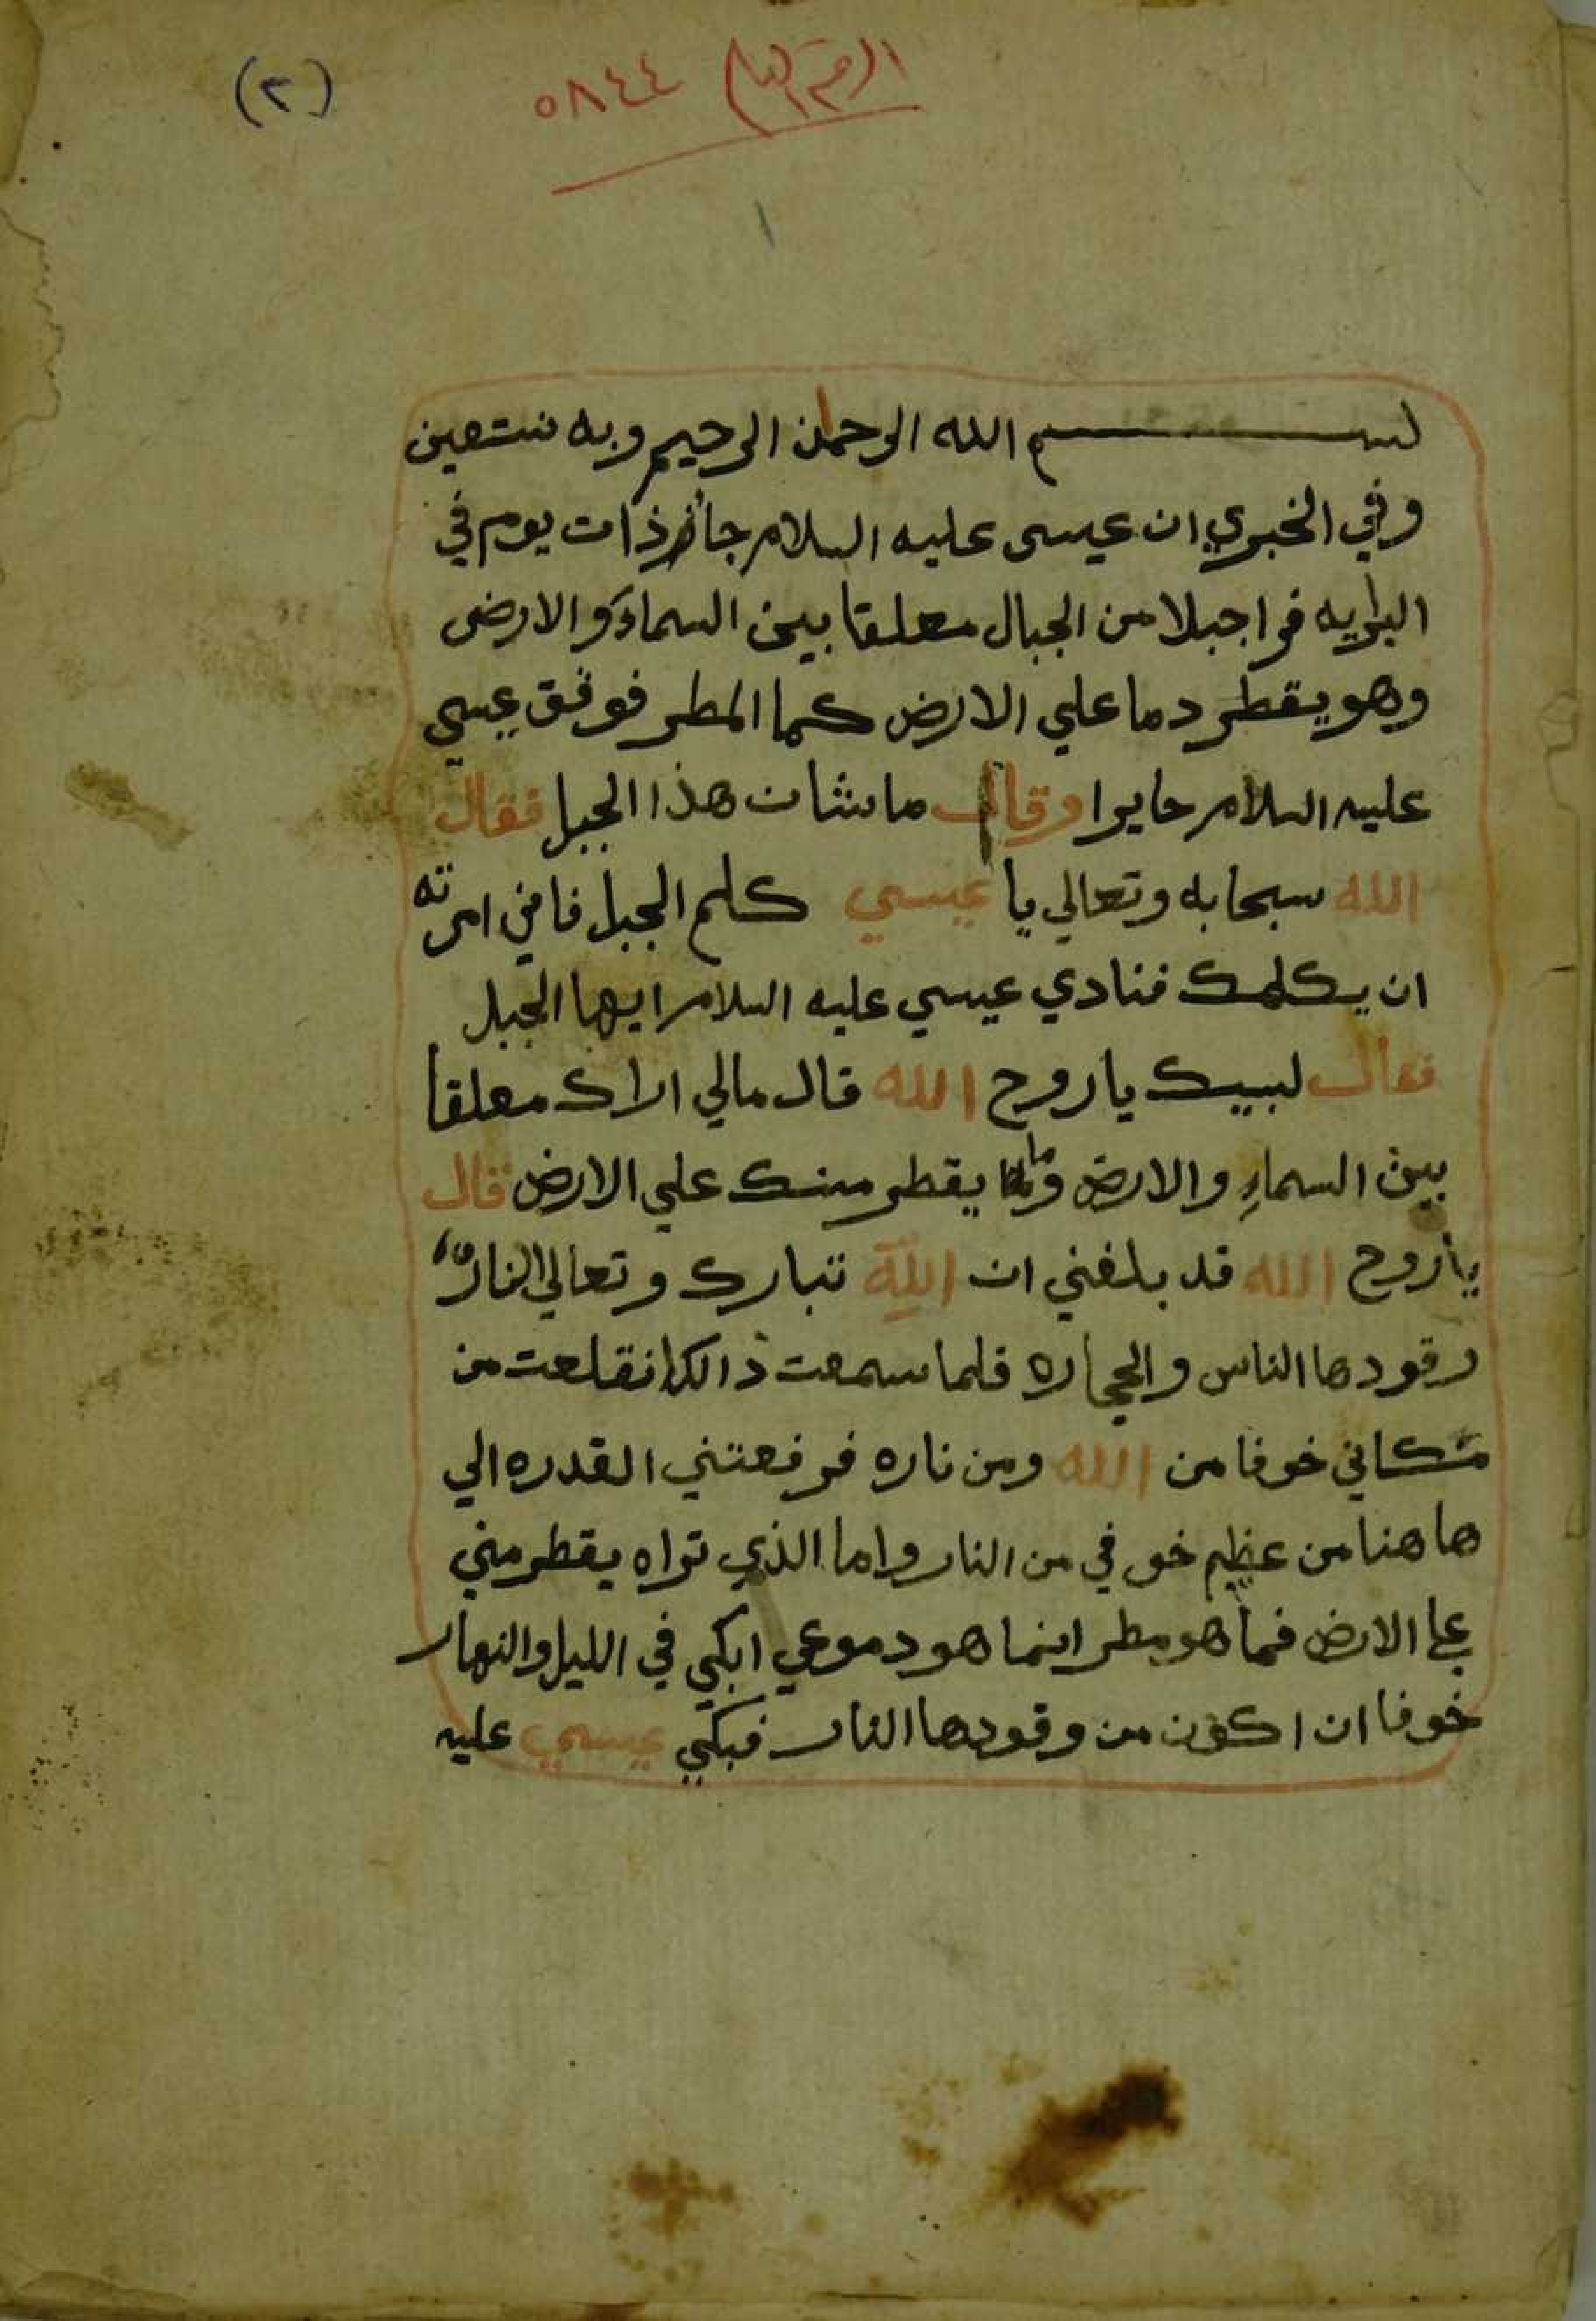 (٢)
الرقم العام ٥٨٤٤
١
بسم الله الرحمان الرحيم وبه نستعين
وفي الخبري ان عيسى عليه السلام جاز ذات يوم في
البرايه فرا جبلا من الجبال معلقا بين السماء والارض
وهو يقطر دما علي الارض كما المطر فوقق عيسي
عليه السلام حايرا وقال ماشان هذا الجبل فقال
الله سبحابه وتعالي يا عيسي كلم الجبل فاني امرته
ان يكلمك فنادي عيسي عليه السلام ايها الجبل
فقال لبيك يا روح الله قال مالي اراك معلقا
بين السماء والارض وما يقطر منك علي الارض قال
يا روح الله قد بلغني ان الله تبارك وتعالي النار
وقودها الناس والحجاره فلما سمعت ذالك انقلعت من
مكاني خوفا من الله ومن ناره فرفعتني القدره الي
ها هنا من عظيم خوفي من النار واما الذي تراه يقطر مني
علي الارض فما هو مطر انما هو دموعي ابكي في الليل والنهار
خوفا ان اكون من وقودها النار فبكي عيسي عليه